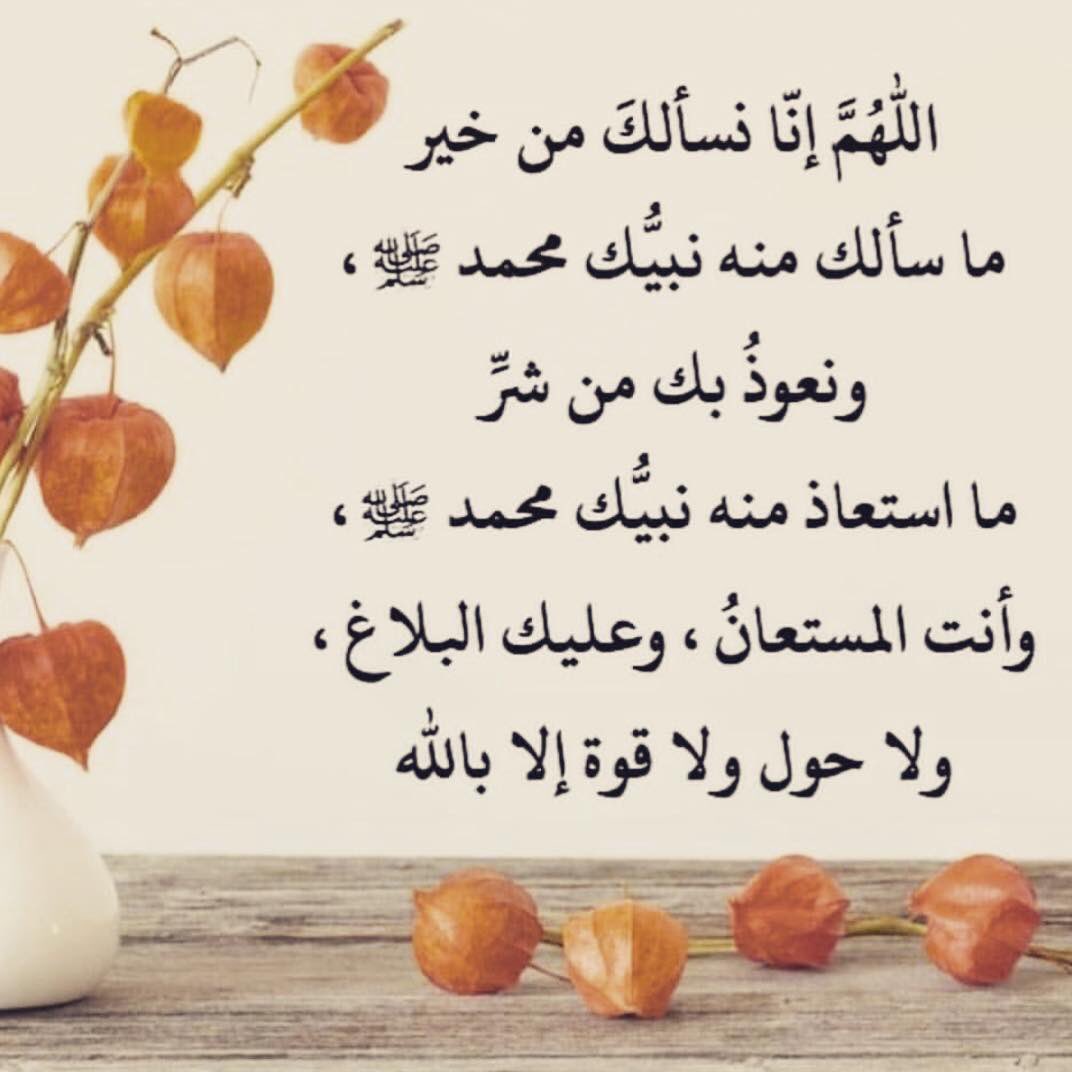 اللّٰهُمَّ إنّا نسألكَ من خير
ما سألك منه نبيُّك محمد ﷺ ،
ونعوذُ بك من شرِّ
ما استعاذ منه نبيُّك محمد ﷺ ،
وأنت المستعانُ ، وعليك البلاغ ،
ولا حول ولا قوة إلا بالله